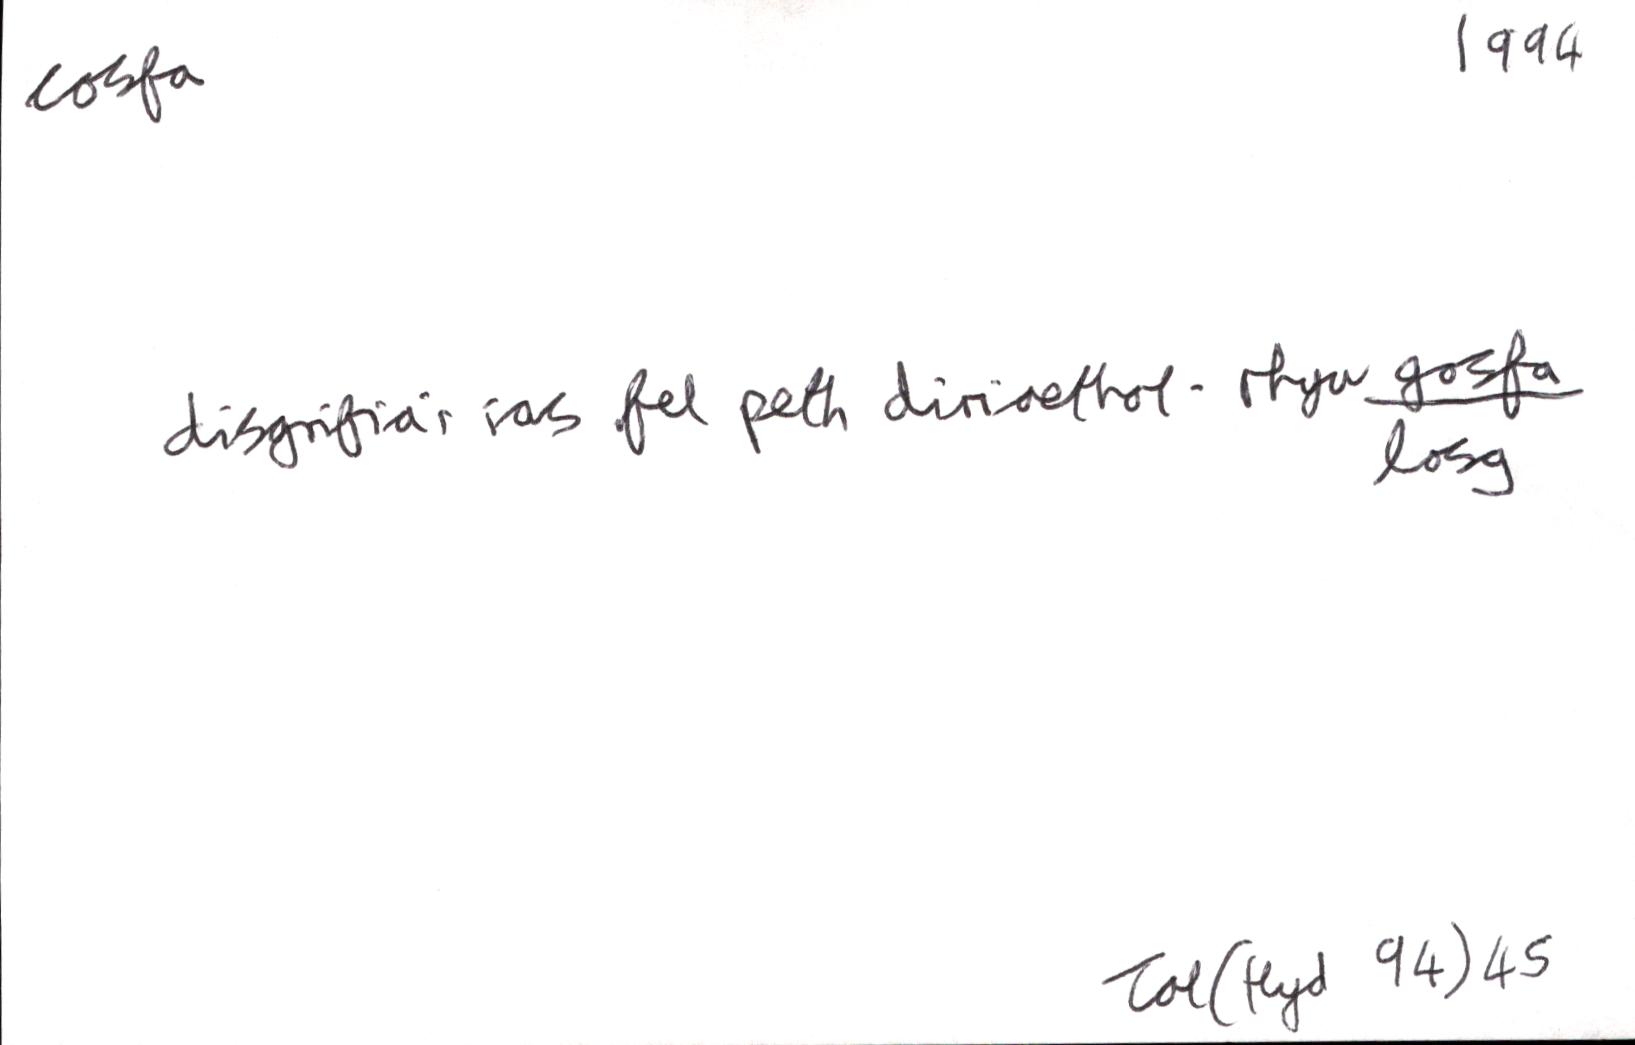 cosfa
1994
disgrifia'r ias fel peth dirisethol - rhyw gosfa
losg
Tal (Hyd 94) 45